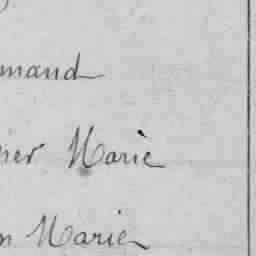 mand
ner Marie
n Marie